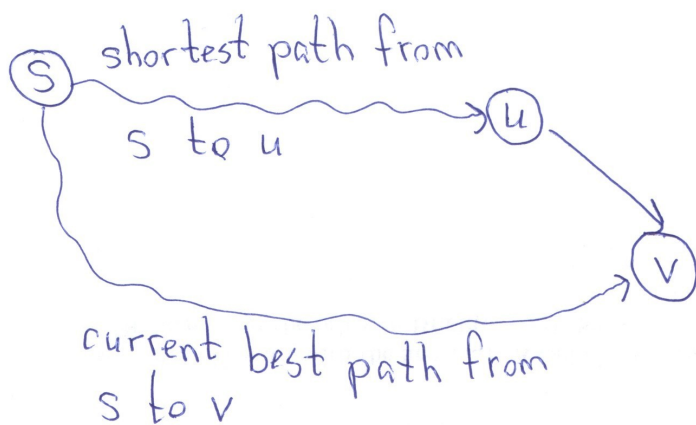 S
shortest path from
s to u
u
v
current best path from
s to v